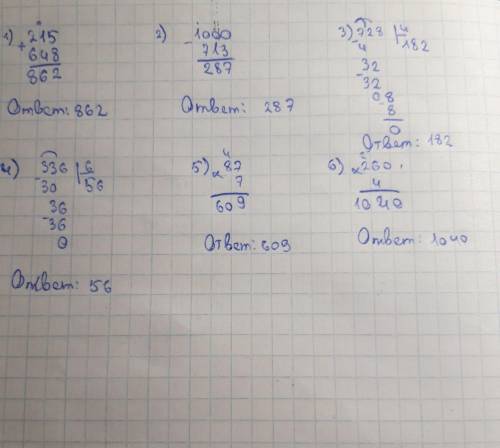 1) 215
+ 648
862
Ответ: 862
2) 1000
- 713
287
Ответ: 287
3) 728 | 4
- 4 182
32
- 32
08
- 8
0
Ответ: 182
4) 336 | 6
- 30 56
36
- 36
0
Ответ: 56
4
5) 87
x 7
609
Ответ: 609
6) 260
x 4
1040
Ответ: 1040